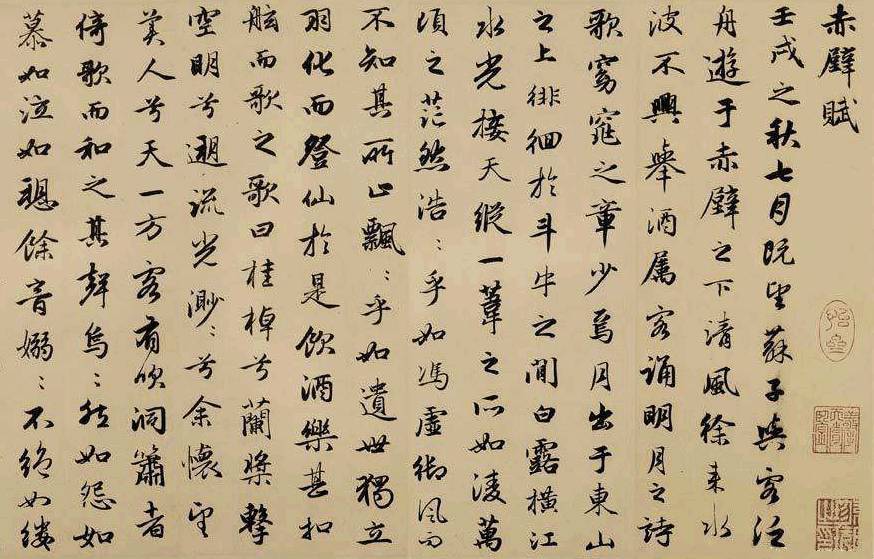 赤壁賦
壬戌之秋七月既望蘇子與客泛
舟遊于赤壁之下清風徐来水
波不興舉酒属客誦明月之詩
歌窈窕之章少焉月出于東山
之上徘徊於斗牛之間白露橫江
水光接天縱一葦之所如淩萬
頃之茫然浩〻乎如馮虛御風而
不知其所止飄〻乎如遺世獨立
羽化而登仙於是飲酒樂甚扣
舷而歌之歌曰桂棹兮蘭槳擊
空明兮遡流光渺〻兮余懷望
美人兮天一方客有吹洞簫者
倚歌而和之其聲烏〻然如怨如
慕如泣如訴餘音嫋〻不絶如縷